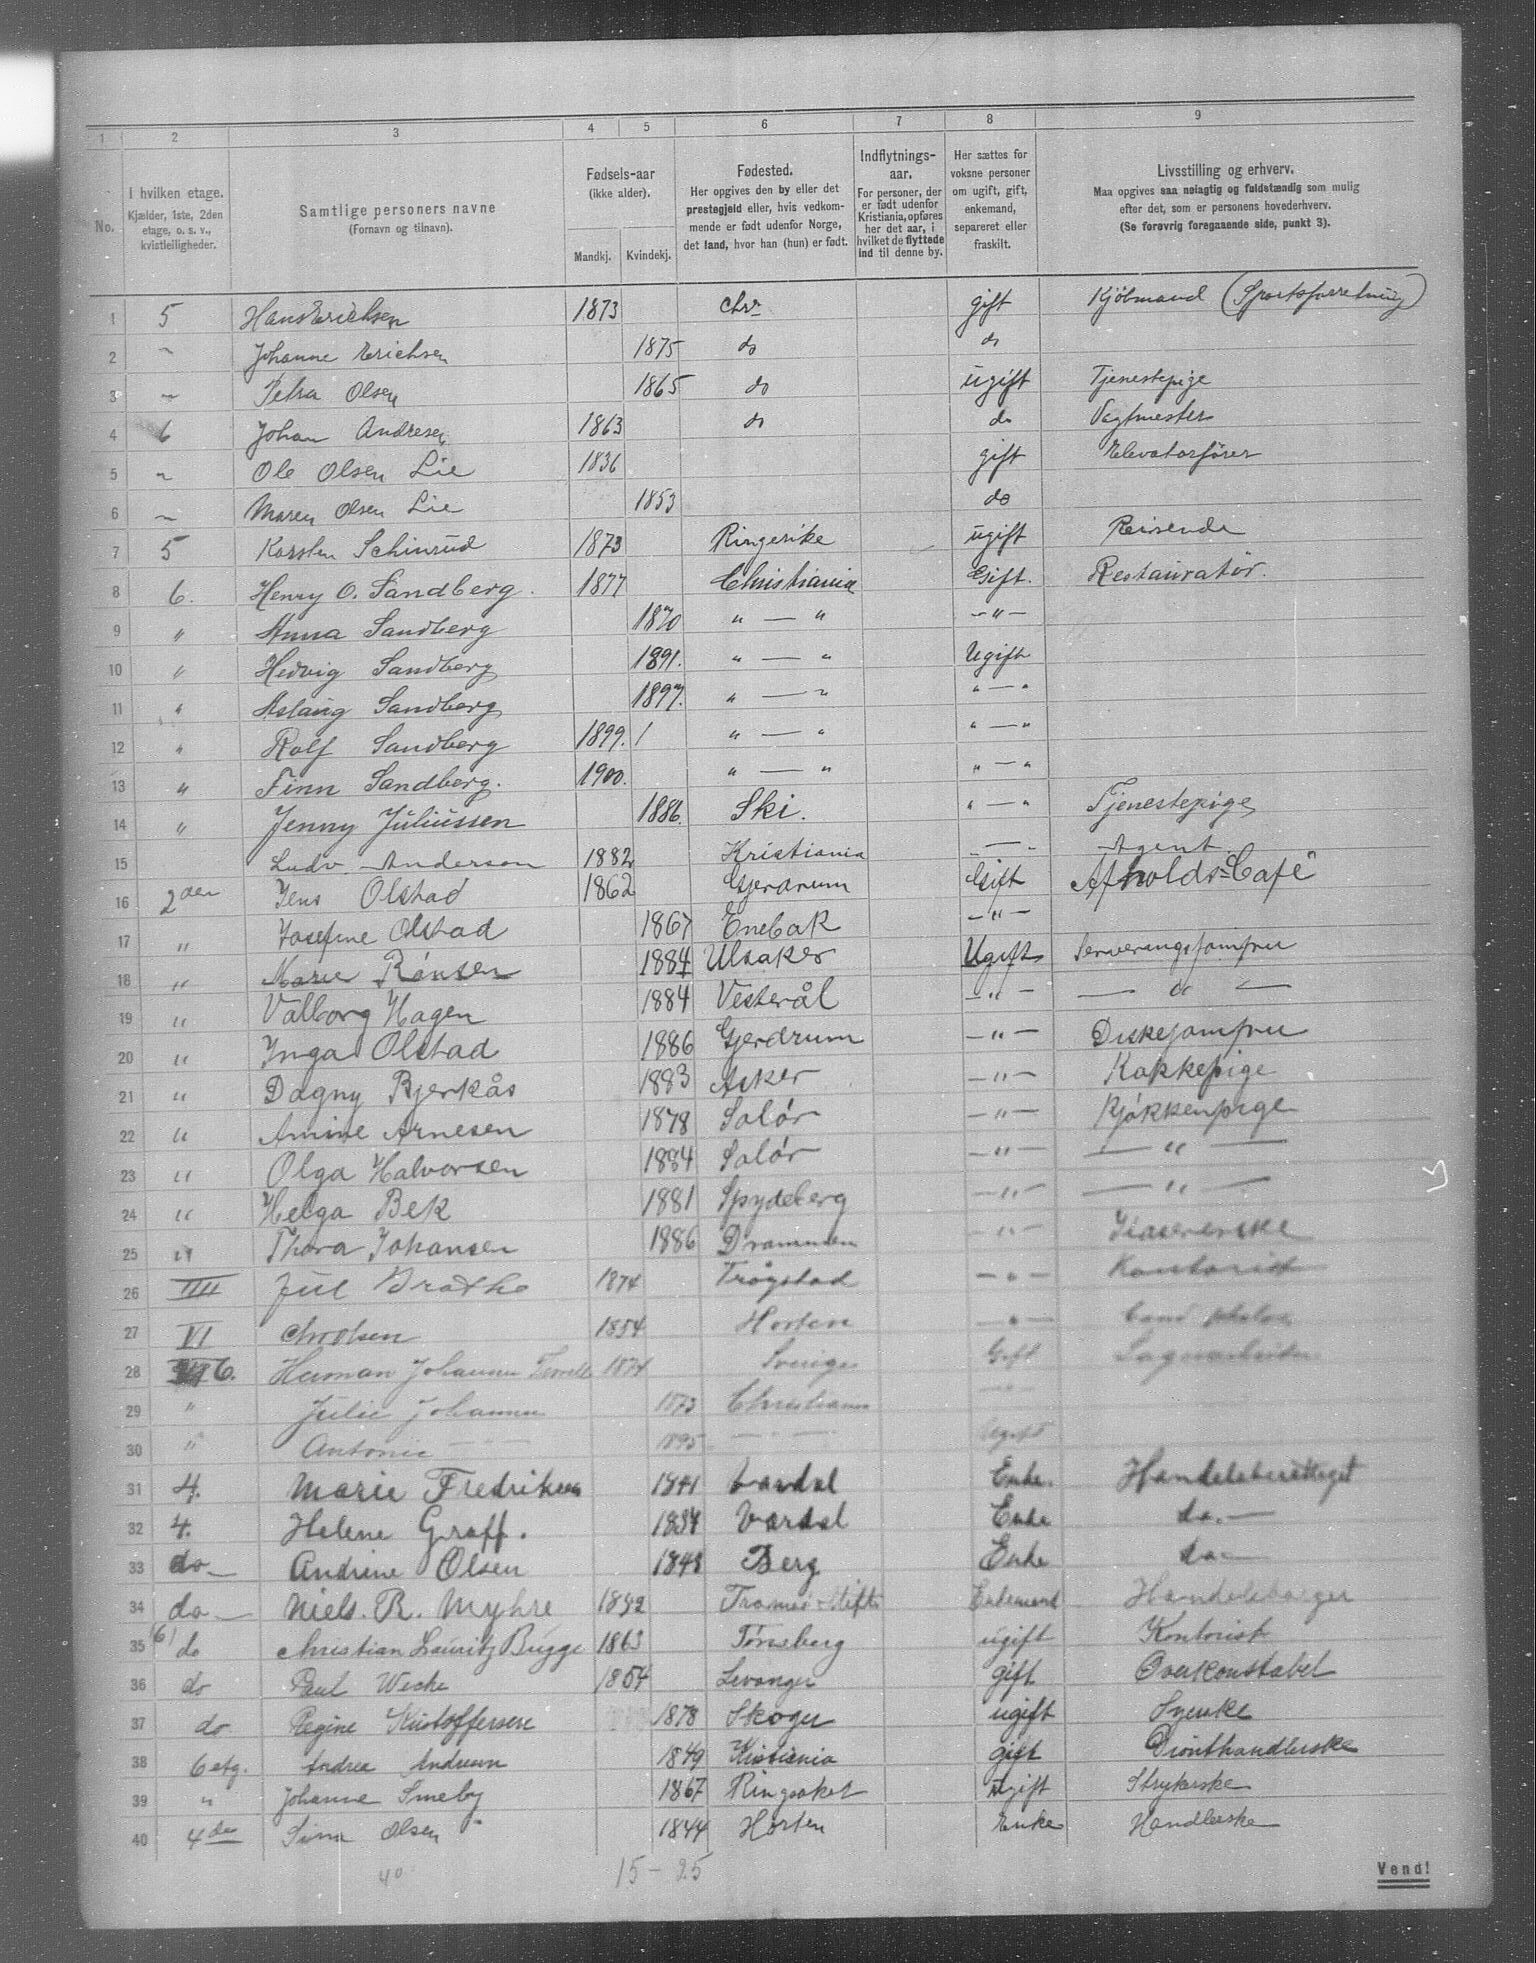 1 2 3 4 5 6 7 8 9
No.
I hvilken etage.
Kjælder, 1ste, 2den
etage, o. s. v.,
kvistleiligheder.
Samtlige personers navne
(Fornavn og tilnavn).
Fødsels-aar
(ikke alder).
Mandkj. Kvindekj.
Fødested.
Her opgives den by eller det
prestegjeld eller, hvis vedkom-
mende er født udenfor Norge,
det land, hvor han (hun) er født.
Indflytnings-
aar.
For personer, der
er født udenfor
Kristiania, opføres
her det aar, i
hvilket de flyttede
ind til denne by.
Her sættes for
voksne personer
om ugift, gift,
enkemand,
separeret eller
fraskilt.
Livsstilling og erhverv.
Maa opgives saa nøiagtig og fuldstændig som mulig
efter det, som er personens hovederhverv.
(Se forøvrig foregaaende side, punkt 3).
1 5 Hans Erichsen 1873 Chr. gift Kjøbmand (Sportsforretning)
2 " Johanne Erichsen 1875 do do
3 " Petra Olsen 1865 do ugift Tjenestepige
4 6 Johan Andresen 1863 do do Vagtmester
5 " Ole Olsen Lie 1836 gift Elevatorfører
6 " Maren Olsen Lie 1853 do
7 5 Karsten Schinrud 1873 Ringerike ugift Reisende
8 6. Henry O. Sandberg. 1877 Christiania Gift. Restauratør.
9 " Anna Sandberg 1870 " — " — " —
10 " Hedvig Sandberg 1891. " — " Ugift
11 " Aslaug Sandberg 1897. " — " " — "
12 " Rolf Sandberg 1899. " — " " — "
13 " Finn Sandberg. 1900. " — " " — "
14 " Jenny Juliussen 1886. Ski. " — " Tjenestepige
15 Ludv. Anderson 1882 Kristiania " — " Agent.
16 2den Jens Olstad 1862 Gjerdrum Gift Afholds-Café
17 " Josefine Olstad 1867 Enebak — " —
18 " Marie Rønsen 1884 Ulsaker Ugift Serveringsjomfru
19 " Valborg Hagen 1884 Vesterål — " — — " —
20 " Inga Olstad 1886 Gjerdrum — " — Diskejomfru
21 " Dagny Bjerkås 1883 Asker — " — Kokkepige
22 " Amine Arnesen 1878 Solør — " — Kjøkkenpige
23 " Olga Halvorsen 1884 Solør — " — — " —
24 " Helga Bek 1881 Spydeberg — " — — " —
25 " Thora Johansen 1886 Drammen — " —
26 IIII Jul Brathe 1874 Trøgstad — " — Kontorist
27 VI Chr Olsen 1854 Horten — " —
28 6. Herman Johannes 1874 Sverige Gift
29 " Julie Johannes 1873 Christiania — " —
30 " Antonie — " — 1895 — " — Ugift
31 4. Marie Fredriksen 1841 Vardal Enke.
32 4. Helene Graff. 1834 Vardal Enke do. —
33 do — Andrine Olsen 1848 Berg Enke do —
34 do — Niels. R. Myhre 1842 Tromsø Stift Enkemand Handelsborger
35 (6) do Christian Lauritz Bugge 1863 Tønsberg ugift Kontorist
36 do Paul Wecke 1854 Levanger gift Overkonstabel
37 do Regine Kristoffersen 1878 Skoger ugift Syerske
38 6 etg. Andrea Andersen 1849 Kristiania gift
39 " Johanne Smeby 1867 Ringsaker Ugift Strykerske
40 4de Sina Olsen 1844 Horten Enke Handlerske
40 15 - 25
Vend!